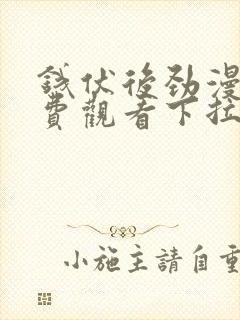 錢伏後勁漫
費觀看下拉
小施主請自重